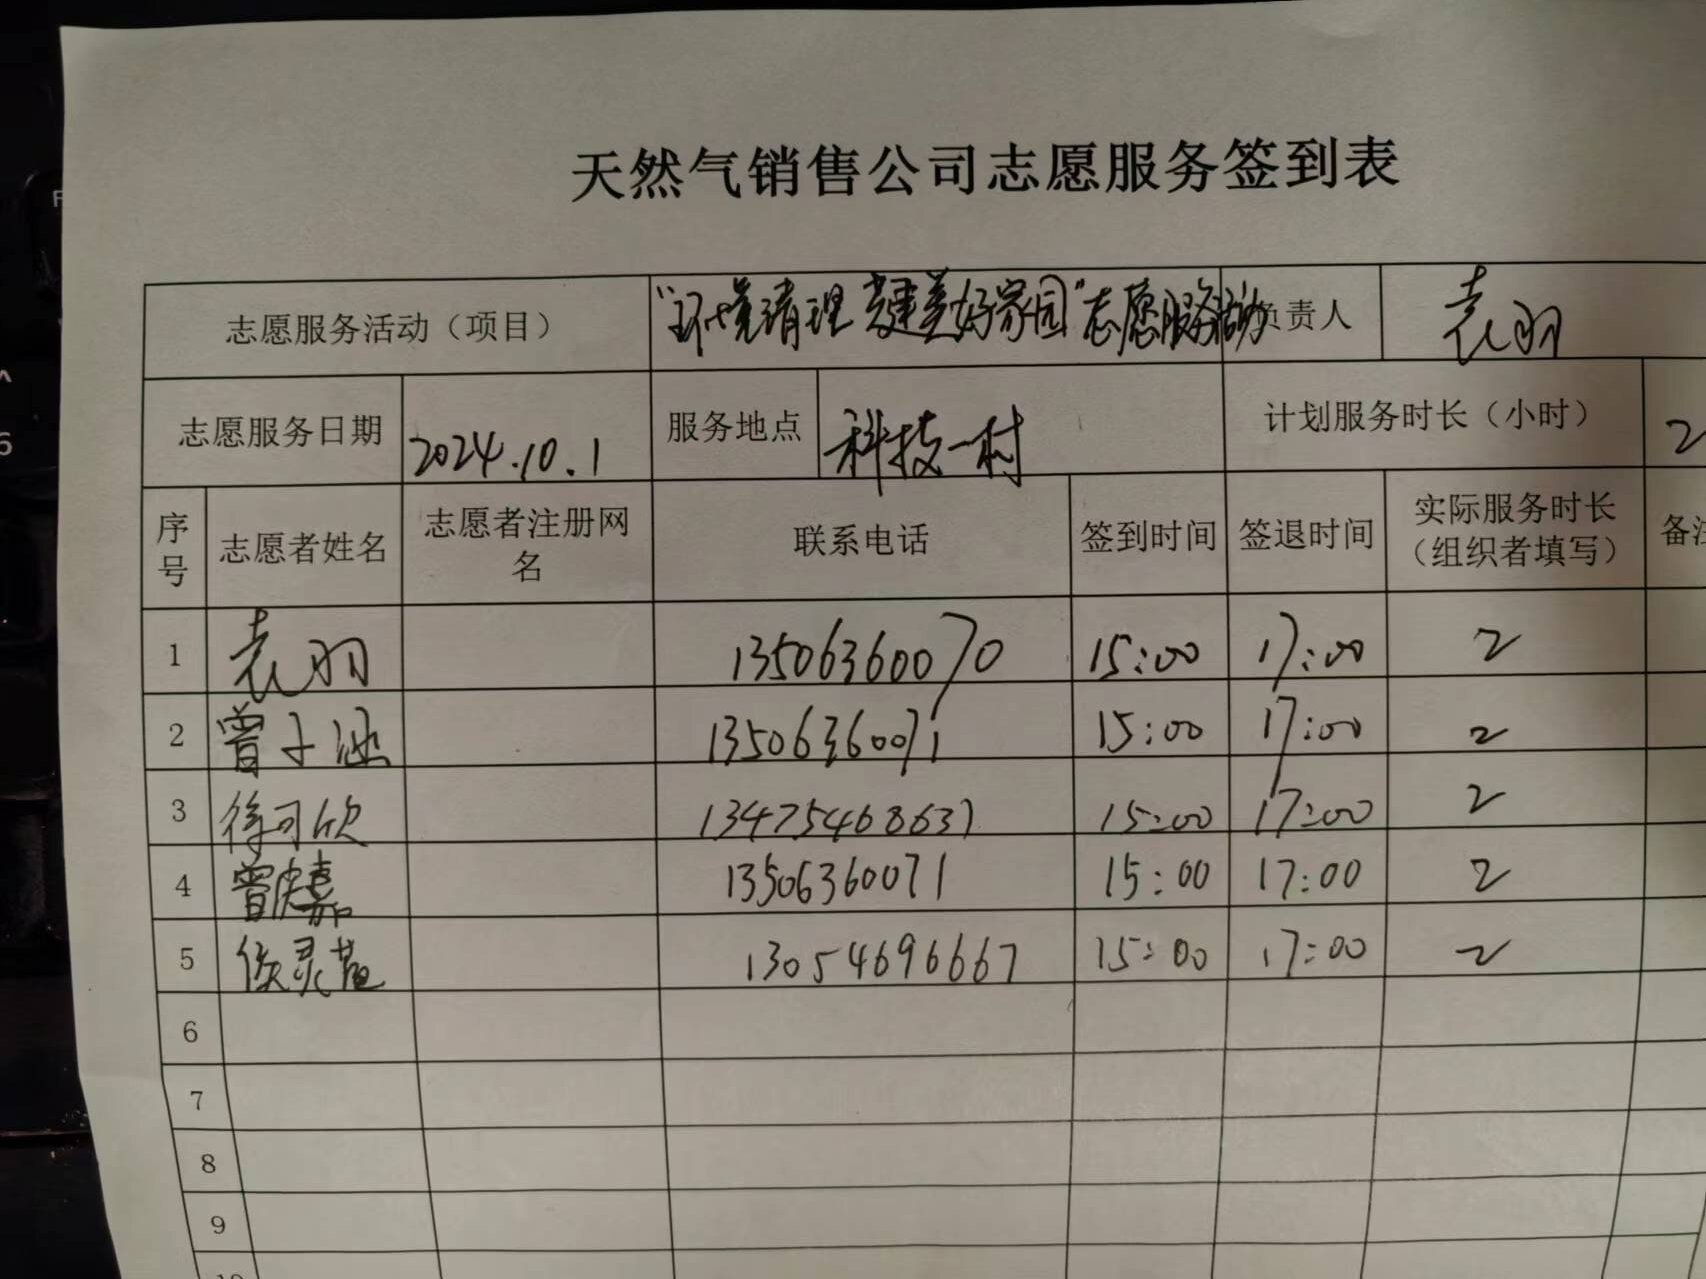 天然气销售公司志愿服务签到表
志愿服务活动（项目） "环境清理 共建美好家园"志愿服务活动 负责人 袁羽
志愿服务日期 2024.10.1 服务地点 科技一村 计划服务时长（小时） 2
序号 志愿者姓名 志愿者注册网名 联系电话 签到时间 签退时间 实际服务时长（组织者填写） 备注
1 袁羽 13506360070 15:00 17:00 2
2 曾子涵 13506360071 15:00 17:00 2
3 徐可欣 13475468637 15:00 17:00 2
4 曾庆嘉 13506360071 15:00 17:00 2
5 13054696667 15:00 17:00 2
6
7
8
9
10